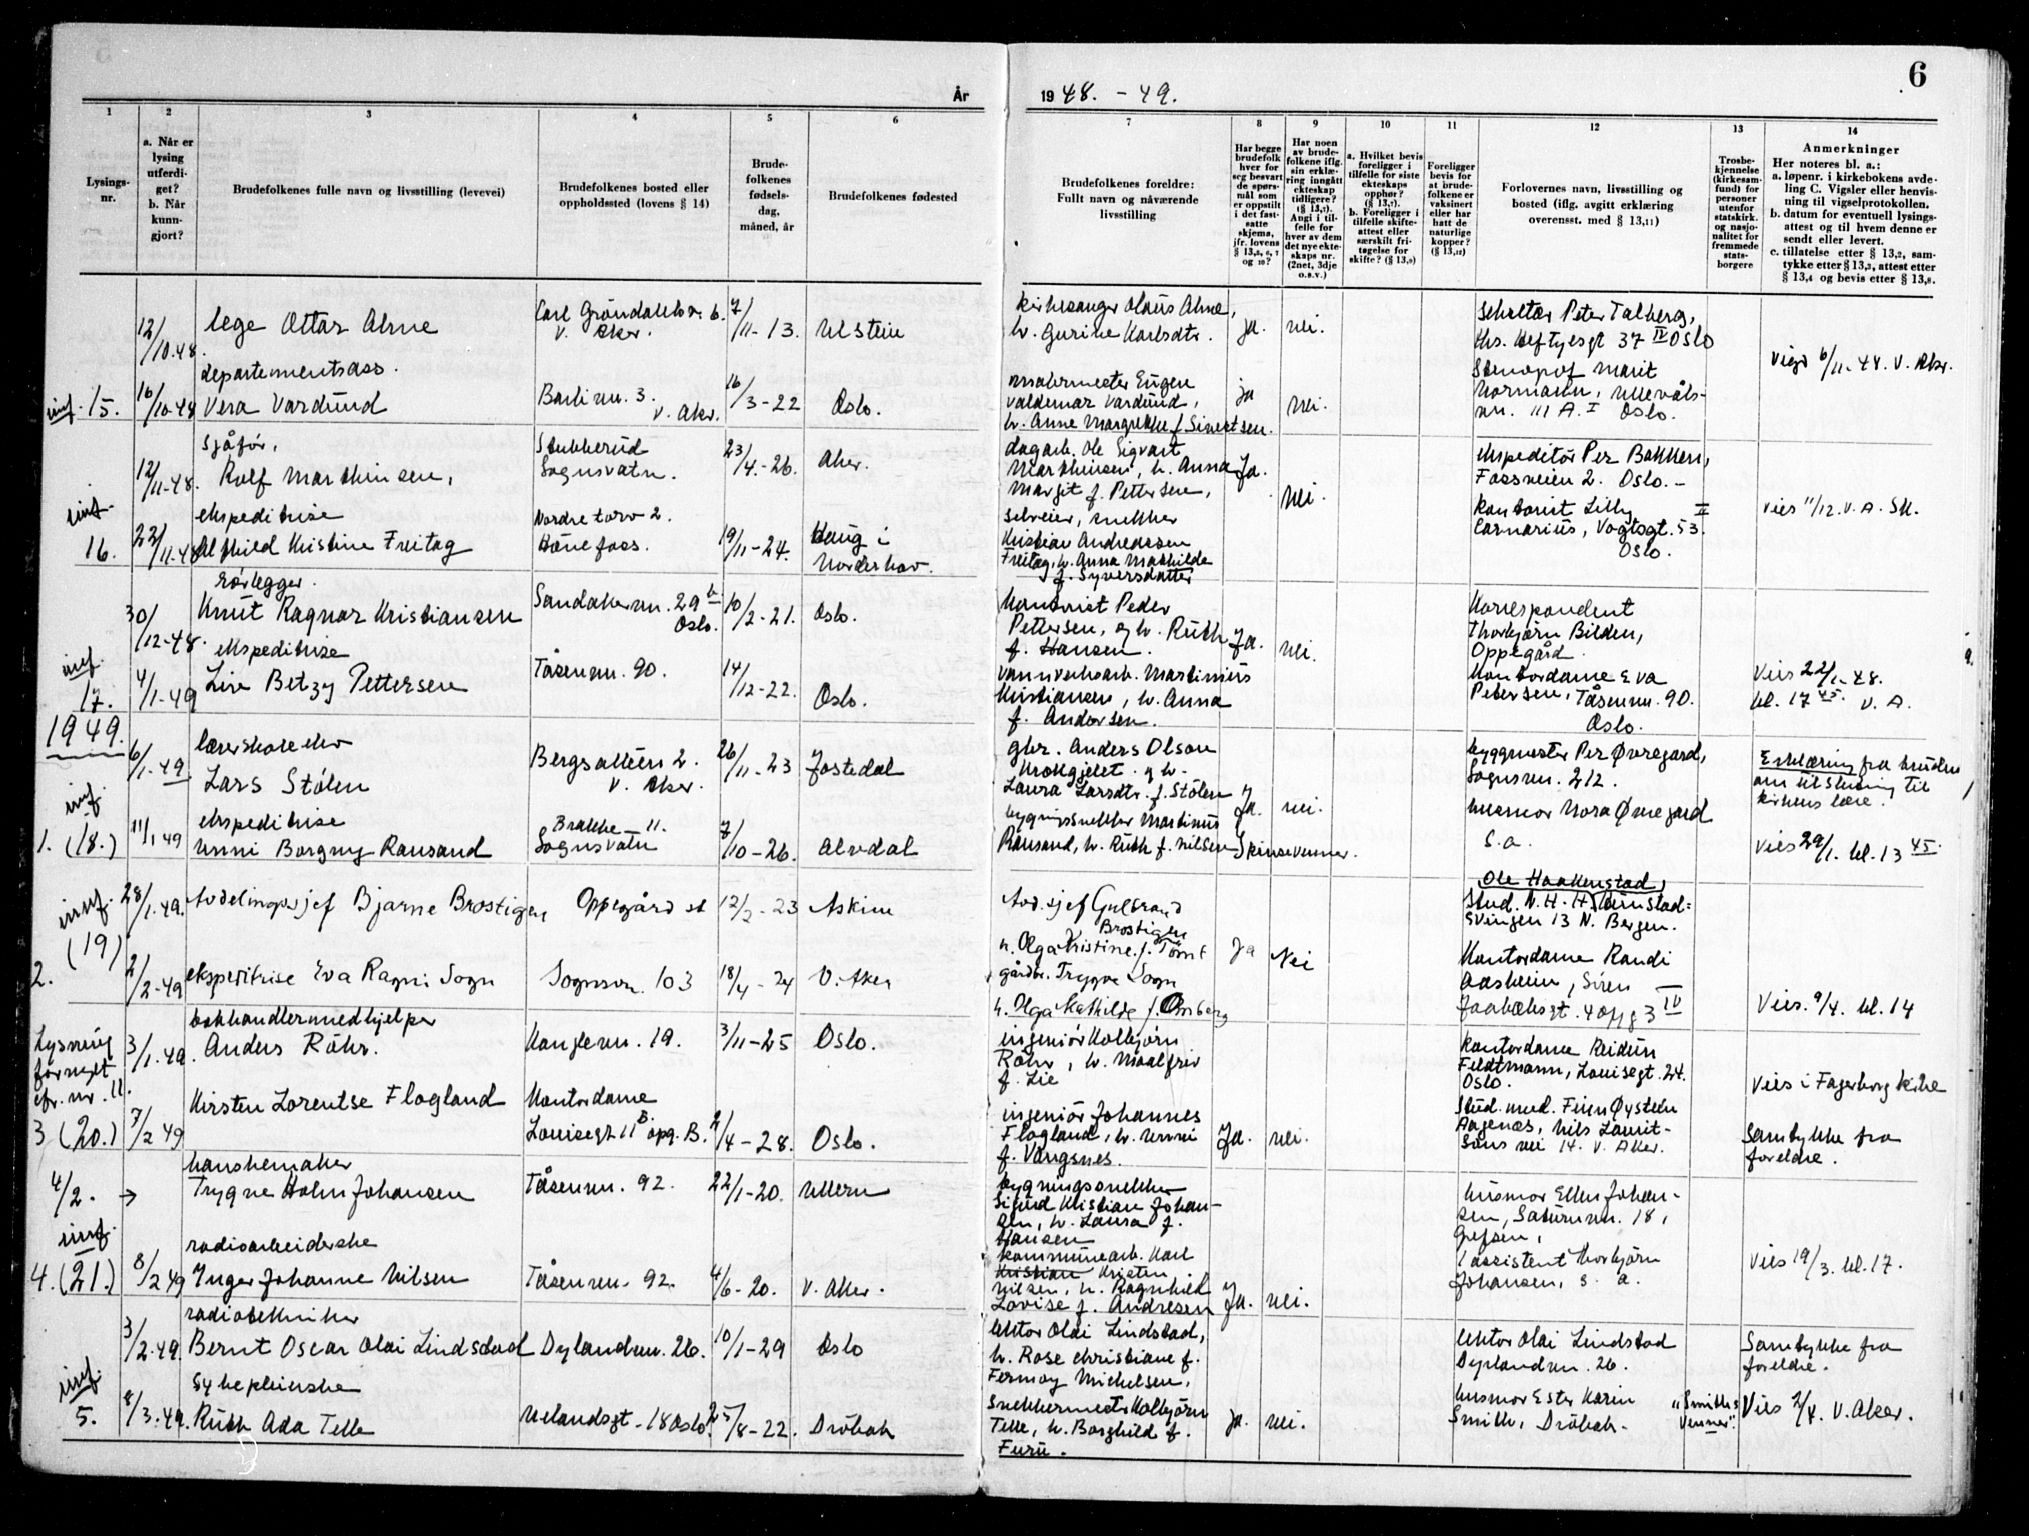 6
År
19 48. - 49.
1
2
3
4
5
6
7
8
9
10
11
12
13
14
Lysings-
nr.
a. Når er
lysing
utferdi-
get?
b. Når
kunn-
gjort?
Brudefolkenes fulle navn og livsstilling (levevei)
Brudefolkenes bosted eller
oppholdssted (lovens § 14)
Brude-
folkenes
fødsels-
dag,
måned, år
Brudefolkenes fødested
Brudefolkenes foreldre:
Fullt navn og nåværende
livsstilling
Har begge
brudefolk
hver for
seg besvart
de spørs-
mål som
er oppstilt
i det fast-
satte
skjema,
jfr. lovens
Har noen
av brude-
folkene iflg.
sin erklæ-
ring inngått
ekteskap
tidligere?
(§ 13,7).
Angi i til-
felle for
hver av dem
det nye ekte-
skaps nr.
(2net, 3dje
o.s.v.)
a. Hvilket bevis
foreligger i
tilfelle for siste
ekteskaps
opphør?
(§ 13,7).
b. Foreligger i
tilfelle skifte-
attest eller
særskilt fri-
tagelse for
skifte? (§ 13,9)
Foreligger
bevis for
at brude-
folkene er
vaksinert
eller har
hatt de
naturlige
kopper?
(§ 13,12)
Forlovernes navn, livsstilling og
bosted (iflg. avgitt erklæring
overensst. med § 13,11)
Trosbe-
kjennelse
(kirkesam-
fund) for
personer
utenfor
statskirk.
og nasjo-
nalitet for
fremmede
stats-
borgere
Anmerkninger
Her noteres bl. a.:
a. løpenr. i kirkebokens avde-
ling C. Vigsler eller henvis-
ning til vigselprotokollen.
b. datum for eventuell lysings-
attest og til hvem denne er
sendt eller levert.
c. tillatelse etter § 13,2, sam-
tykke etter § 13,3, attest etter
§ 13,4 og bevis etter § 13,8.
12/10-48.
lege Ottar Alme
v. Aker.
7/11-13.
Ulstein
kirkesanger Olaus Alme,
h. Gurine Karlsdtr.
ja.
nei.
Peter Talberg,
Ths. Heftyesgt 37 IV Oslo
6/11-48. V. Aker.
15.
16/10-48
departementsass.
Vera Vardund
v. Aker.
16/3-22
Oslo.
malermester Eugen
Valdemar Vardund,
h. Anne Margrethe f Sivertsen.
ja
nei.
Marit
Normann, Ullevåls-
vn. 111 A. I Oslo.
12/11-48.
sjåfør,
Rolf Marthinsen,
Stubberud
Sognsvatn.
23/4.-26.
Aker.
dagarb. Ole Sigvart
Marthinsen, h. Anna
Margit f. Pettersen,
Ja.
nei.
ekspeditør Per Bakken,
Fossveien 2. Oslo.-
16.
22/11-48
ekspeditrise
Alfhild Kristine Freitag
Nordre torv 2.
Hønefoss.
19/11-24.
Haug i
Norderhov.
selveier, snekker
Kristian Andreassen
Freitag, h. Anna Mathilde
f. Syversdatter
kontorist Lilly
Carnarius, Vogtsgt. 53. II
Oslo.
Vies 11/12. V. A. Sk.
30/12-48.
rørlegger.
Knut Ragnar Kristiansen
Sandakervn. 29 b
Oslo.
10/2-21.
Oslo.
Kontorist Peder
Pettersen, og h. Ruth
f. Hansen.
Ja.
nei.
Korrespondent
Thorbjørn Bilden,
Oppegård.
17.
4/1-49
ekspeditrise
Liv Betzy Pettersen
Tåsenvn. 90.
14/12-22.
Oslo.
vannverksarb. Martinius
Kristiansen, h. Anna
f. Andersen.
Kontordame Eva
Petersen, Tåsenvn. 90.
Oslo.
Vies 22/1-48.
kl. 17 45. V. A.
1949.
6/1-49
lærerskoleelev
Lars Stølen
Bergsalleen 2.
V. Aker.
26/11-23
Jostedal
gbr. Anders Olson
Krokgjelet. og h.
Laura Larsdtr. f. Stølen
Ja.
nei.
byggmester Per Øvregard,
Sognsvn. 212.
Erklæring fra bruden
om tilslutning til
kirkens lære.
1. (18.)
11/1 49
ekspeditrise
Unni Borgny Ransand
Brakke 11.
Sognsvatn
7/10-26.
Alvdal
bygningssnekker Martinus
Ransand, h. Ruth f. Nilsen
husmor Nora Øvregard
s.a.
Vies 29/1. kl. 13 45.
2. (19)
28/1.49.
Avdelingssjef Bjarne Brostigen
Oppegård st
12/2-23
Askim
Avd. sjef Gulbrand
Brostigen
h. Olga Kristine f. Tømt
Ja
Nei
Ole Haakenstad,
Stud. N.H.H.
Svingen 13 N. Bergen.
2/2-49
ekspeditrise Eva Ragni Sogn
Sognsvn. 103
18/4-24
V. Aker
gårdbr. Trygve Sogn
h. Olga Mathilde f. Omberg
Kontordame Randi
Aasheim, Siren
Vies. 9/4. kl. 14
Lysning
fornyet
cfr. nr. 11.
3/1.49.
bokhandlermedhjelper
Anders Röhr.
Konglevn. 19.
3/11-25
Oslo.
ingeniör Kolbjörn
Röhr, h. Maalfrid
f. Lie
kontordame Reidun
Feldtmann, Louisegt. 24.
Oslo.
Vies i Fagerborg kirke
3 (20.)
7/2 49
Kirsten Lorentse Flogland
Kontordame
Louisegt 11 B opg. B.
2/4-28.
Oslo.
ingeniör Johannes
Flogland, h. Unni
f. Vangsnes.
Ja.
nei.
Stud. med. Finn Øystein
Aagenæs, Nils Laurit-
sens vei 14. V. Aker.
Samtykke fra
foreldre.
4/2. →
hanskemaker
Trygve Holm Johansen
Tåsenvn. 92.
22/1-20.
Ullern
bygningssnekker
Sigurd Kristian Johan-
sen, h. Laura f.
Hansen
husmor Ellen Johan-
sen, Saturnvn. 18,
Grefsen,
4. (21.)
8/2 49
radioarbeiderske
Inger Johanne Nilsen
Tåsenvn. 92.
4/6-20.
V. Aker.
kommunearb. Karl
Kristian Kristen
Nilsen, h. Ragnhild
Lovise f. Andresen
Ja.
nei.
assistent Thorbjørn
Johansen, s. a.
Vies 19/3. kl. 17.
3/2.49.
radiotekniker
Bernt Oscar Olai Lindstad
Dylandvn. 26.
10/1-29
Oslo
lektor Olai Lindstad,
h. Rose Christiane f.
Fermoy Michelsen,
lektor Olai Lindstad
Dylandvn. 26.
Samtykke fra
foreldre.
5.
8/3.49.
sykepleierske
Ruth Ada Telle
Uelandsgt. 18 Oslo.
25/8-22.
Dröbak
Snekkermester Kolbjörn
Telle, h. Borghild f.
Furu.
Ja.
nei.
husmor Ester Karin
Smith, Dröbak.
"Smiths
Venner".
Vies 2/4. V. Aker.